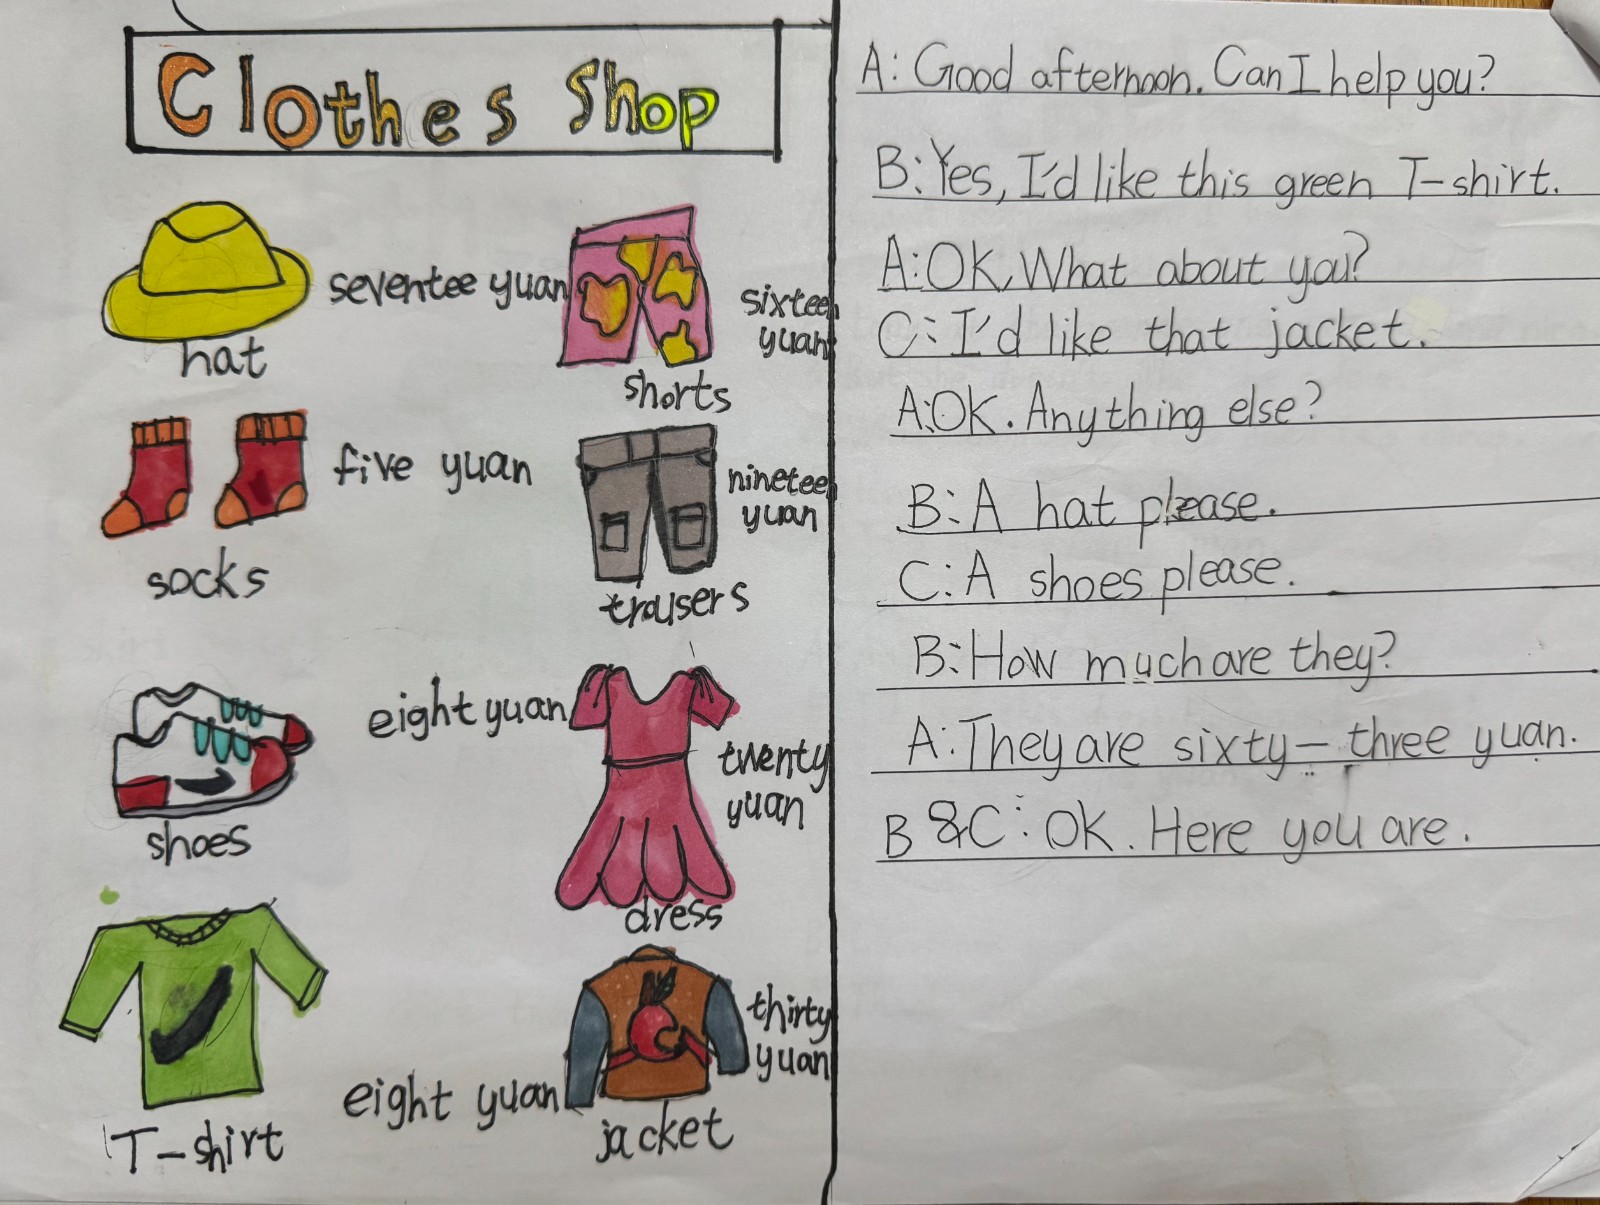 Clothes Shop
seventee yuan
hat
sixteen
yuan
shorts
five yuan
socks
nineteen
yuan
trousers
eight yuan
shoes
twenty
yuan
dress
eight yuan
T-shirt
thirty
yuan
jacket
A: Good afternoon. Can I help you?
B: Yes, I'd like this green T-shirt.
A: OK, What about you?
C: I'd like that jacket.
A: OK. Anything else?
B: A hat please.
C: A shoes please.
B: How much are they?
A: They are sixty-three yuan.
B &C: OK. Here you are.